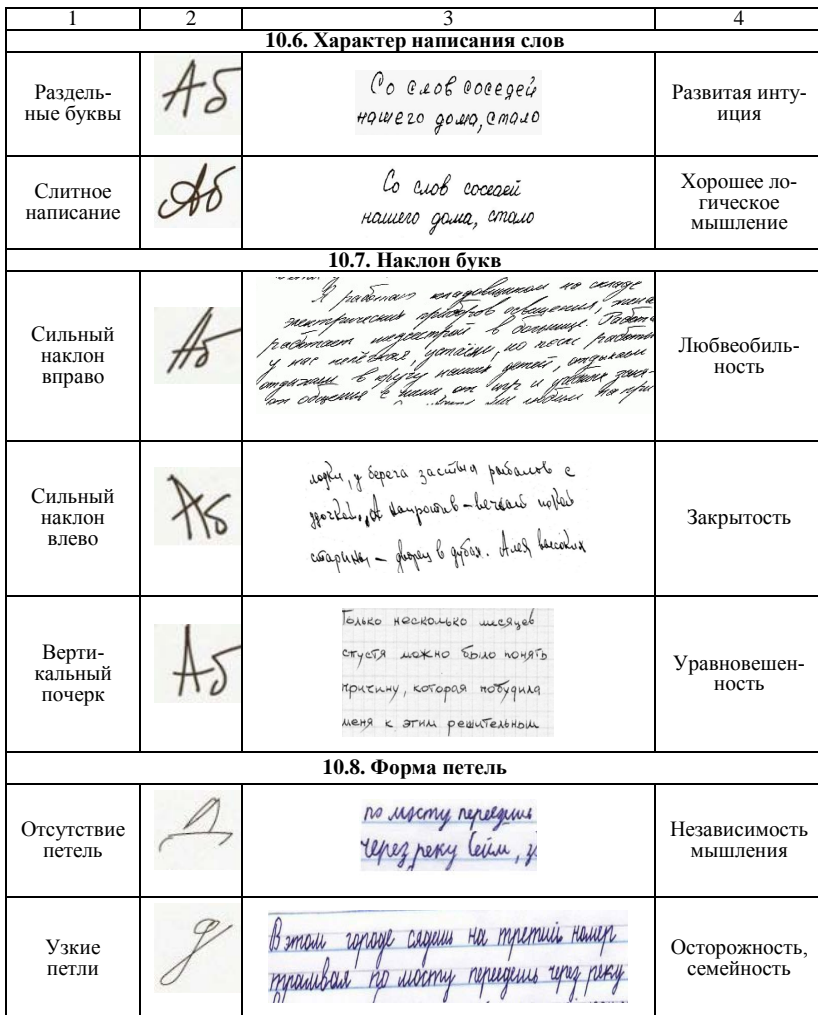 1 2 3 4
10.6. Характер написания слов
Раздель-
ные буквы
Аб
Со слов соседей
нашего дома, стало
Развитая инту-
иция
Слитное
написание
Аб
Со слов соседей
нашего дома, стало
Хорошее ло-
гическое
мышление
10.7. Наклон букв
Сильный
наклон
вправо
Аб
Я работаю кладовщиком на складе
электрических приборов освещения, жена
работает медсестрой в больнице. Работа
у нас нелёгкая, устаём, но после работы
отдыхаем в кругу наших детей, отдыхаем
от общения с ними от игр и
Любвеобиль-
ность
Сильный
наклон
влево
Аб
лодки, у берега застыл рыболов с
удочкой. А напротив – вечный покой
старины – дворец в дубах. Аллея высоких
Закрытость
Верти-
кальный
почерк
Аб
Только несколько месяцев
спустя можно было понять
причину, которая побудила
меня к этим решительным
Уравновешен-
ность
10.8. Форма петель
Отсутствие
петель
Д
по мосту переедешь
через реку Сейм, з
Независимость
мышления
Узкие
петли
В этом городе сядешь на третий номер
трамвая по мосту переедешь через реку
Осторожность,
семейность